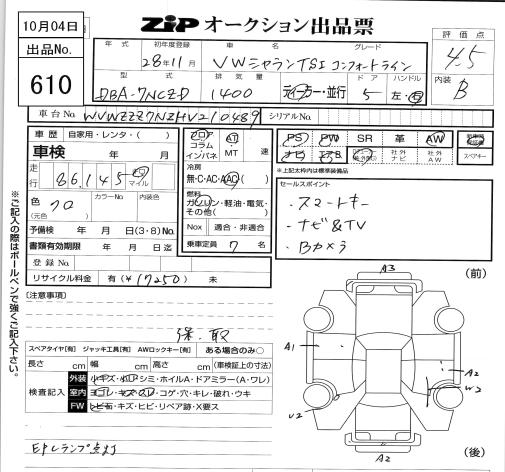 10月04日
ZIP オークション出品票
出品No.
610
評価点
4.5
内装
B
年式 初年度登録 車名 グレード
28年11月 VWシャラン TSI コンフォートライン
型式 排気量 ドア ハンドル
DBA-7NCZD 1400 ディーラー・並行 5 左・右
車台No WVWZZZ7NZHV210489 シリアルNo
車歴 自家用・レンタ・( )
車検 年 月
走行 86,145 キロ マイル
色(元色) クロ カラーNo 内装色
予備検 年 月 日(3・8)MO
書類有効期限 年 月 日迄
登録No
リサイクル料金 有(¥17250) 未
フロア コラム インパネ
AT・MT 速
冷房
無・C・AC・AAC
燃料
ガソリン・軽油・電気・その他( )
Nox 適合・非適合
乗車定員 7 名
PS PW SR 革 AW
ナビ エアB 社外ナビ 社外AW
スペアキー
※上記太枠内は標準装備品
セールスポイント
・スマートキー
・ナビ&TV
・Bカメラ
(注意事項)
保.取
スペアタイヤ[有] ジャッキ工具[有] AWロックキー[有] ある場合のみ○
長さ cm 幅 cm 高さ cm (車検証上の寸法)
検査記入
外装 小キズ・小凹・シミ・ホイルA・ドアミラー(A・ワレ)
室内 ヨゴレ・キズ・スレ・コゲ・穴・キレ・破れ・ウキ
FW トビ石・キズ・ヒビ・リペア跡・X要ス
EPCランプ点灯
※ご記入の際はボールペンで強くご記入下さい。
(前)
A3
A1
A2
W2
U2
A2
(後)